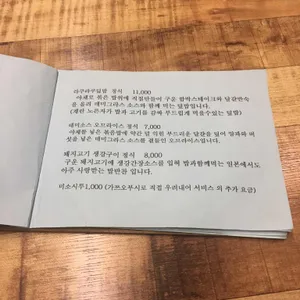 라구라구덮밥 정식 11,000
야채로 볶은 밥위에 직접만들어 구운 함박스테이크와 달걀반숙
을 올려 데미그라스 소스와 함께 먹는 덮밥입니다.
(계란 노른자가 밥과 고기를 감싸 부드럽게 먹을수있는 덮밥)
데미소스 오므라이스 정식 7,000
야채를 넣은 볶음밥에 약간 덜 익힌 부드러운 달걀을 넣어
넣은 데미그라스 소스를 곁들인 오므라이스입니다.
돼지고기 생강구이 정식 8,000
구운 돼지고기에 생강간장소스를 입혀 밥과함께먹는 일본에서도
아주 사랑받는 밥반찬 입니다.
미소시루1,000 (가쓰오부시로 직접 우려내어 서비스 외 추가 요금)